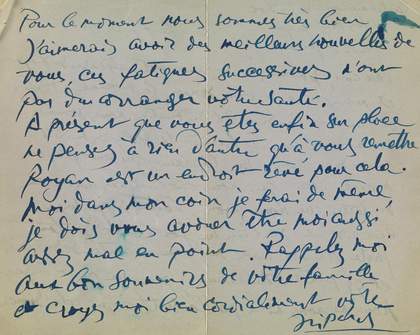 Pour le moment nous sommes très bien
J'aimerais avoir des meilleurs nouvelles de
vous, ces fatigues successives n'ont
pas du arranger votre santé.
A présent que vous êtes enfin sur place
ne pensez à rien d'autre qu'à vous remettre
Royan est un endroit rêvé pour cela.
Moi dans mon coin je ferai de même
je dois vous avouer être moi aussi
assez mal en point. Rappelez moi
aux bon souvenirs de votre famille
et croyez moi bien cordialement votre